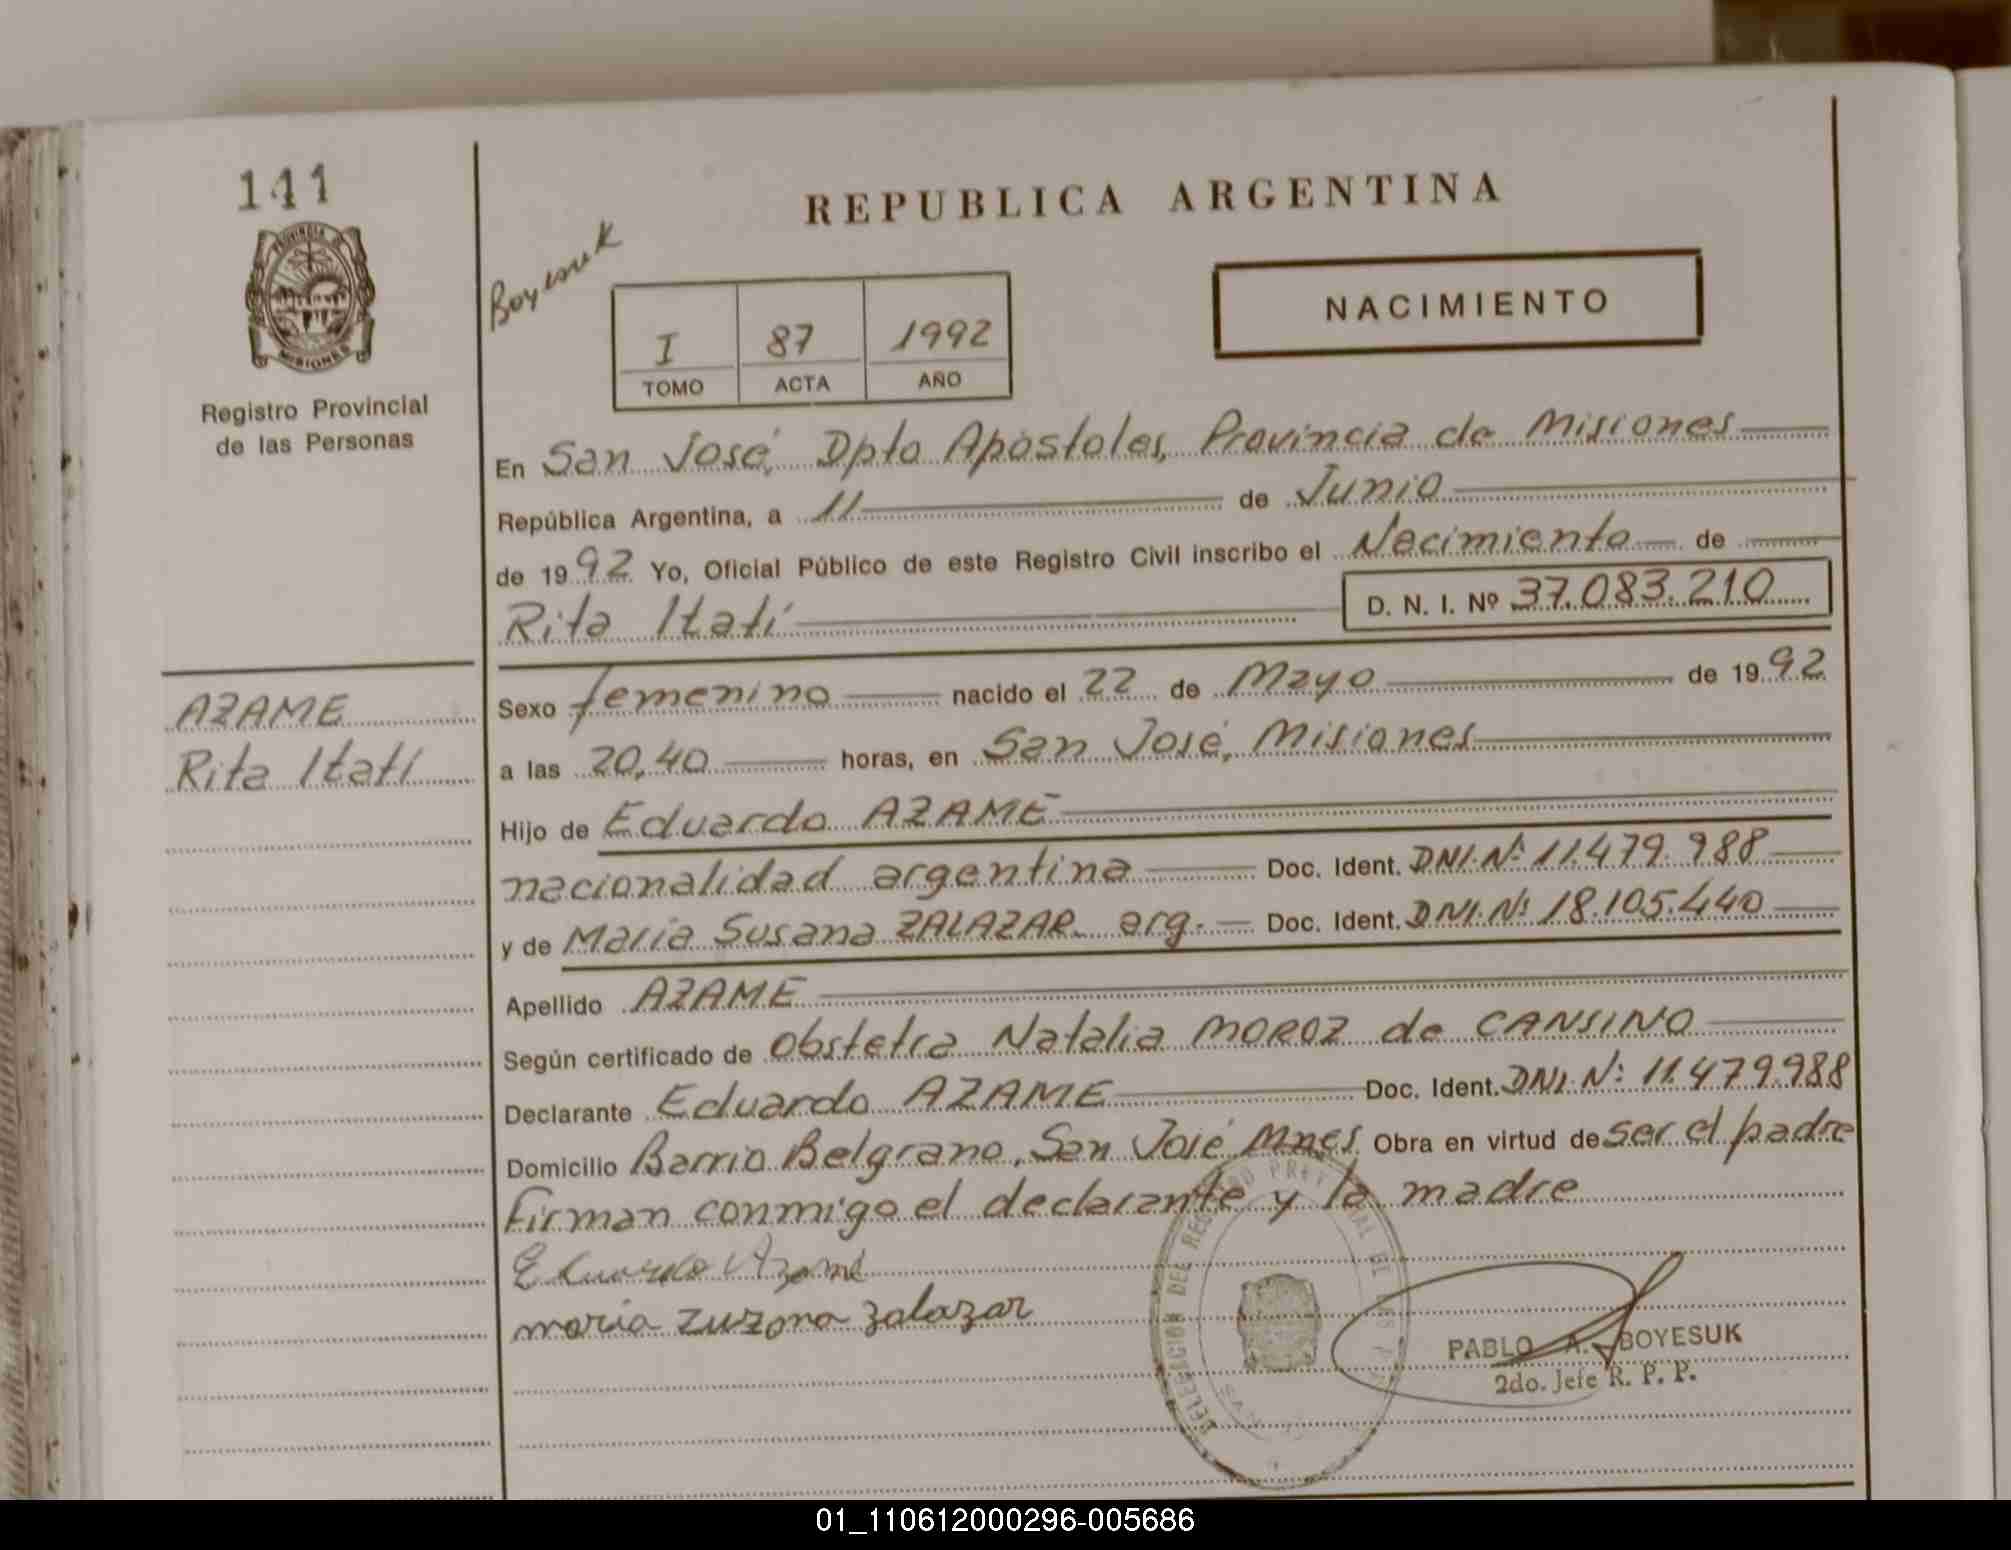 141
PROVINCIA DE
MISIONES
Registro Provincial
de las Personas
AZAME
Rita Itatí
REPUBLICA ARGENTINA
Boyesuk
I 87 1992
TOMO ACTA AÑO
NACIMIENTO
En San José, Dpto Apóstoles, Provincia de Misiones
República Argentina, a 11 de Junio
de 1992 Yo, Oficial Público de este Registro Civil inscribo el Nacimiento de
Rita Itatí D. N. I. Nº 37.083.210
Sexo femenino nacido el 22 de Mayo de 1992
a las 20,40 horas, en San José, Misiones
Hijo de Eduardo AZAME
nacionalidad argentina Doc. Ident. DNI. Nº 11.479.988
y de María Susana ZALAZAR arg. Doc. Ident. DNI. Nº 18.105.440
Apellido AZAME
Según certificado de Obstetra Natalia MOROZ de CANSINO
Declarante Eduardo AZAME Doc. Ident. DNI. Nº 11.479.988
Domicilio Barrio Belgrano, San José Mnes. Obra en virtud de ser el padre
Firman conmigo el declarante y la madre
Eduardo Azame
maria zuzana zalazar
DELEGACION DEL
PABLO A. BOYESUK
2do. Jefe R. P. P.
01_110612000296-005686